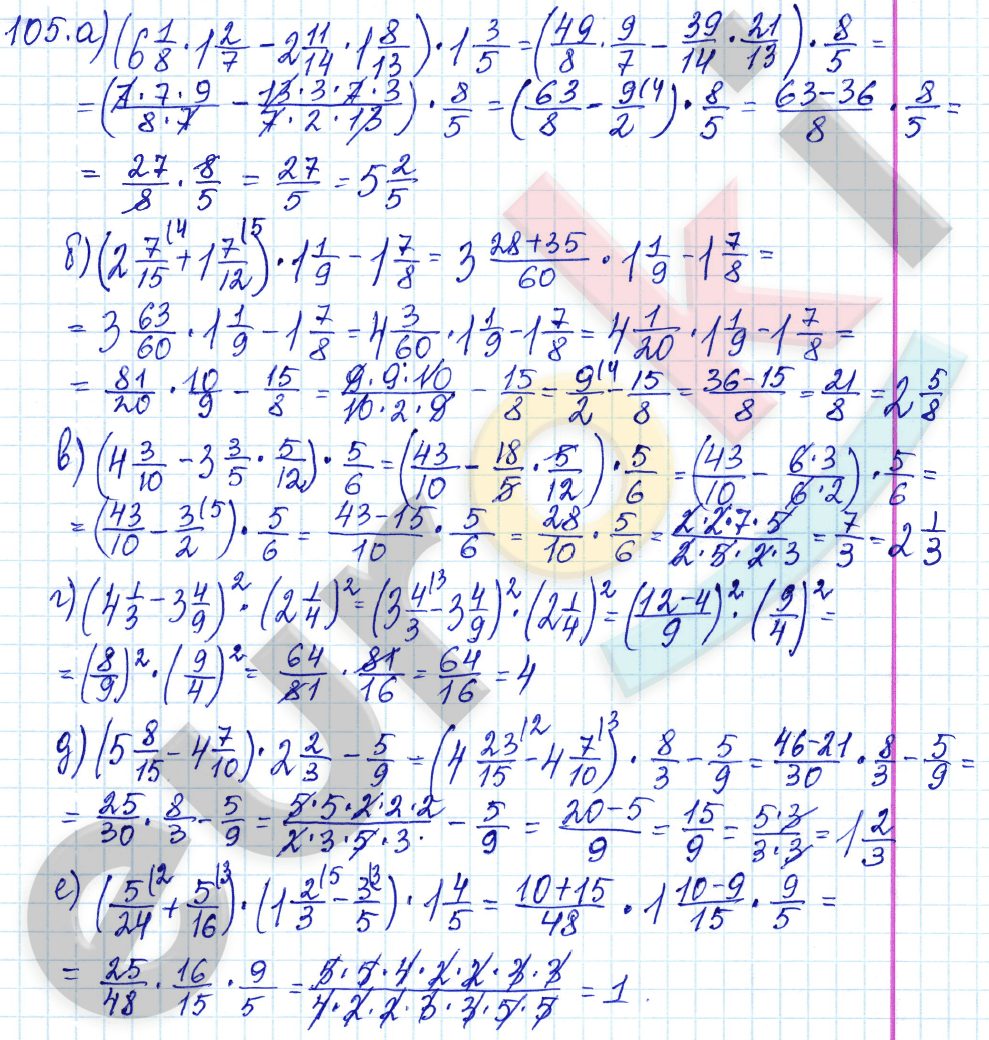 105.а) (6 1/8 · 1 2/7 − 2 11/14 · 1 8/13) · 1 3/5 = (49/8 · 9/7 − 39/14 · 21/13) · 8/5 =
= (7·7·9/8·7 − 13·3·7·3/7·2·13) · 8/5 = (63/8 − 9/2 (4) · 8/5 = 63−36/8 · 8/5 =
= 27/8 · 8/5 = 27/5 = 5 2/5
б) (2 7/15 (4 + 1 7/12 (5) · 1 1/9 − 1 7/8 = 3 28+35/60 · 1 1/9 − 1 7/8 =
= 3 63/60 · 1 1/9 − 1 7/8 = 4 3/60 · 1 1/9 − 1 7/8 = 4 1/20 · 1 1/9 − 1 7/8 =
= 81/20 · 10/9 − 15/8 = 9·9·10/10·2·9 − 15/8 = 9/2 (4 − 15/8 = 36−15/8 = 21/8 = 2 5/8
в) (4 3/10 − 3 3/5 · 5/12) · 5/6 = (43/10 − 18/5 · 5/12) · 5/6 = (43/10 − 6·3/6·2) · 5/6 =
= (43/10 − 3/2 (5) · 5/6 = 43−15/10 · 5/6 = 28/10 · 5/6 = 2·2·7·5/2·5·2·3 = 7/3 = 2 1/3
г) (4 1/3 − 3 4/9)² · (2 1/4)² = (3 4/3 (3 − 3 4/9)² · (2 1/4)² = (12−4/9)² · (9/4)² =
= (8/9)² · (9/4)² = 64/81 · 81/16 = 64/16 = 4
д) (5 8/15 − 4 7/10) · 2 2/3 − 5/9 = (4 23/15 (2 − 4 7/10 (3) · 8/3 − 5/9 = 46−21/30 · 8/3 − 5/9 =
= 25/30 · 8/3 − 5/9 = 5·5·2·2·2/2·3·5·3 − 5/9 = 20−5/9 = 15/9 = 5·3/3·3 = 1 2/3
е) (5/24 (2 + 5/16 (3) · (1 2/3 (5 − 3/5 (3) · 1 4/5 = 10+15/48 · 1 10−9/15 · 9/5 =
= 25/48 · 16/15 · 9/5 = 5·5·4·2·2·3·3/4·2·2·3·3·5·5 = 1.
euroki